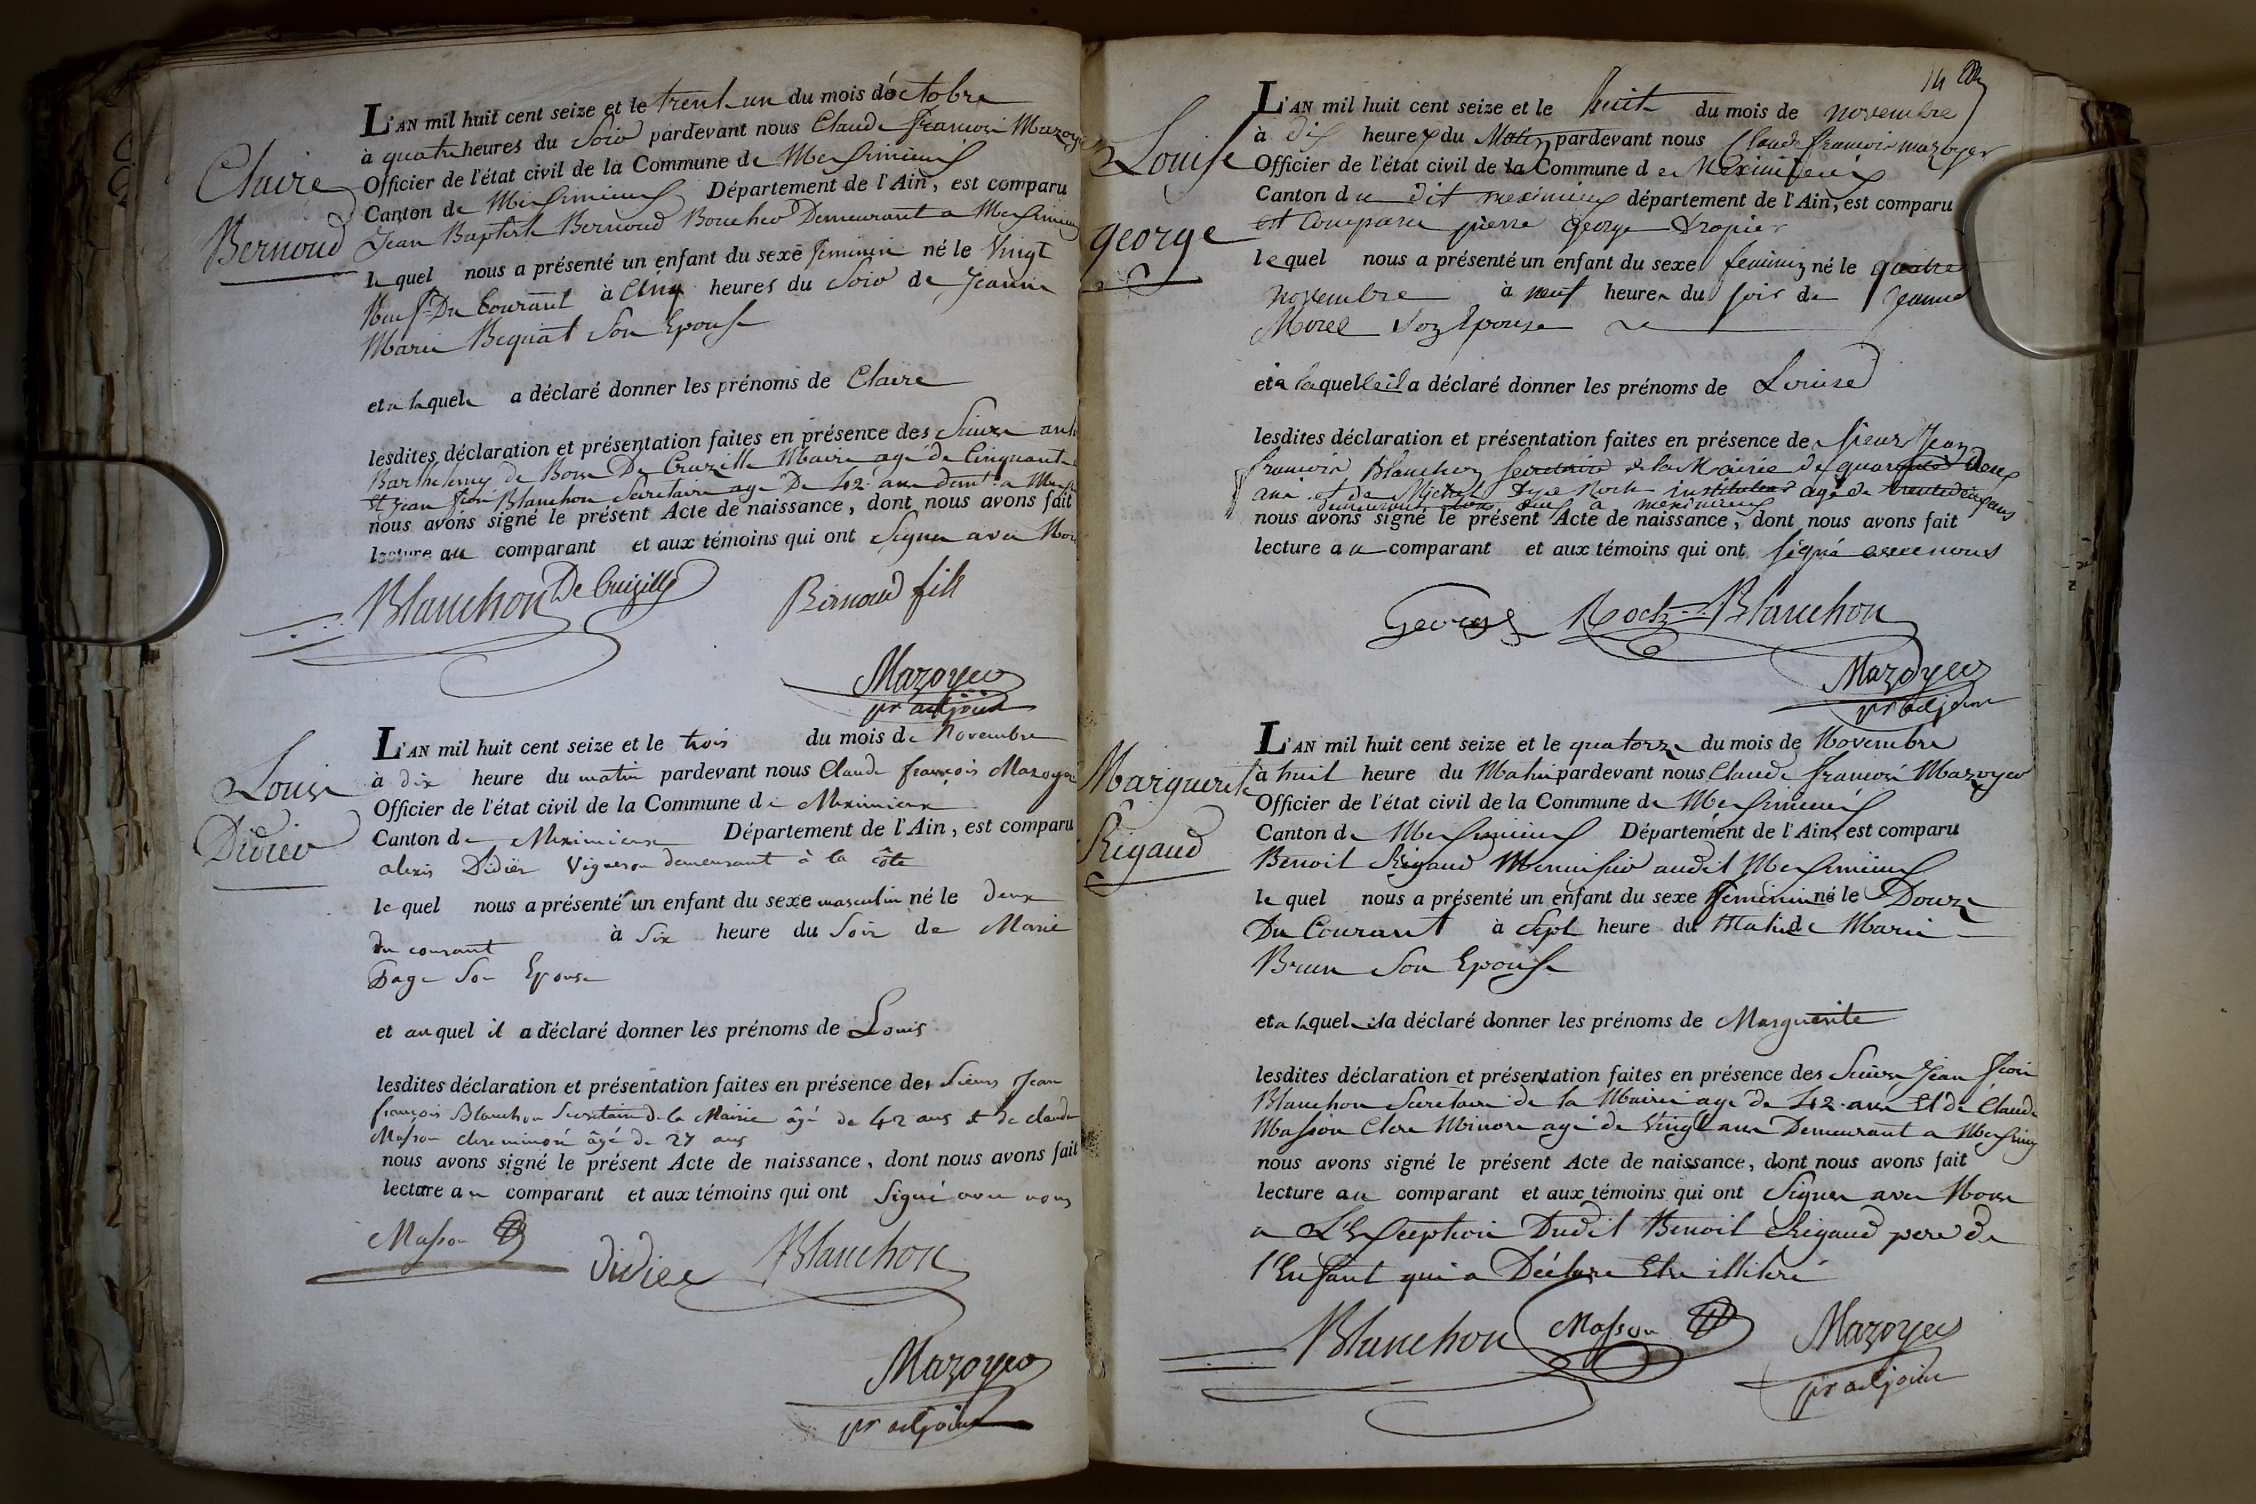 Claire
Bernoud
L'AN mil huit cent seize et le trent un du mois de octobre
à quatre heures du Soir pardevant nous Claude francois Mazoyer
Officier de l'état civil de la Commune de Meximieux
Canton de Meximieux Département de l'Ain, est comparu
Jean Baptiste Bernoud Boucher Demeurant a Meximieux
le quel nous a présenté un enfant du sexe feminin né le Vingt
Neuf Du Courant à Cinq heures du Soir de Jeanne
Marie Bequat Son Epouse
et a laquele a déclaré donner les prénoms de Claire
lesdites déclaration et présentation faites en présence des Sieurs
Barthelemy de Bose De Cruzille Maire agé de Cinquante
et Jean fcois Blanchon Secretaire age De 42 ans demt a
nous avons signé le présent Acte de naissance, dont nous avons fait
lecture au comparant et aux témoins qui ont Signer avec Nous
Blanchon De Cruzille Bernoud fils
Mazoyer
pr adjoint
Louis
Didier
L'AN mil huit cent seize et le trois du mois de Novembre
à dix heure du matin pardevant nous Claude françois Mazoyer
Officier de l'état civil de la Commune de Meximieux
Canton de Meximieux Département de l'Ain, est comparu
alexis Didier Vigneron demeurant à la côte
le quel nous a présenté un enfant du sexe masculin né le deux
du courant à Six heure du Soir de Marie
Page Son Epouse
et au quel il a déclaré donner les prénoms de Louis
lesdites déclaration et présentation faites en présence des Sieurs Jean
françois Blanchon Secretaire de la Mairie âgé de 42 ans et de claude
Masson clerc minoré âgé de 27 ans
nous avons signé le présent Acte de naissance, dont nous avons fait
lecture au comparant et aux témoins qui ont Signé avec nous
Masson didier Blanchon
Mazoyer
pr adjoint
14
Louise
george
L'AN mil huit cent seize et le huit du mois de novembre
à dix heures du Matin pardevant nous Claude francois mazoyer
Officier de l'état civil de la Commune de Meximieux
Canton du dit meximieux département de l'Ain, est comparu
est Comparu pierre george drapier
le quel nous a présenté un enfant du sexe feminin né le quatre
novembre à neuf heures du soir de Jeanne
Morel son Epouse
et a laquelle il a déclaré donner les prénoms de Louise
lesdites déclaration et présentation faites en présence de sieurs Jean
francois Blanchon secretaire de la Mairie de quarante deux
ans et de Michel Roch instituteur agé de trente cinq ans
demeurant tous deux a meximieux
nous avons signé le présent Acte de naissance, dont nous avons fait
lecture au comparant et aux témoins qui ont signé avec nous
George Roch Blanchon
Mazoyer
pr adjoint
Marguerite
Rigaud
L'AN mil huit cent seize et le quatorze du mois de Novembre
à huit heure du Matin pardevant nous Claude francois Mazoyer
Officier de l'état civil de la Commune de Meximieux
Canton de Meximieux Département de l'Ain, est comparu
Benoit Rigaud Menuisier audit Meximieux
le quel nous a présenté un enfant du sexe feminin né le Douze
Du Courant à Sept heure du Matin de Marie
Brun Son Epouse
et a laquele il a déclaré donner les prénoms de Marguerite
lesdites déclaration et présentation faites en présence des Sieurs Jean fcois
Blanchon Secretaire de la Mairie age de 42 ans et de Claude
Masson Clerc Minoré agé de Vingt ans Demeurant a Meximieux
nous avons signé le présent Acte de naissance, dont nous avons fait
lecture au comparant et aux témoins qui ont Signer avec Nous
a L'Exception Dudit Benoit Rigaud pere de
l'Enfant qui a Déclare Etre illiteré
Blanchon Masson Mazoyer
pr adjoint